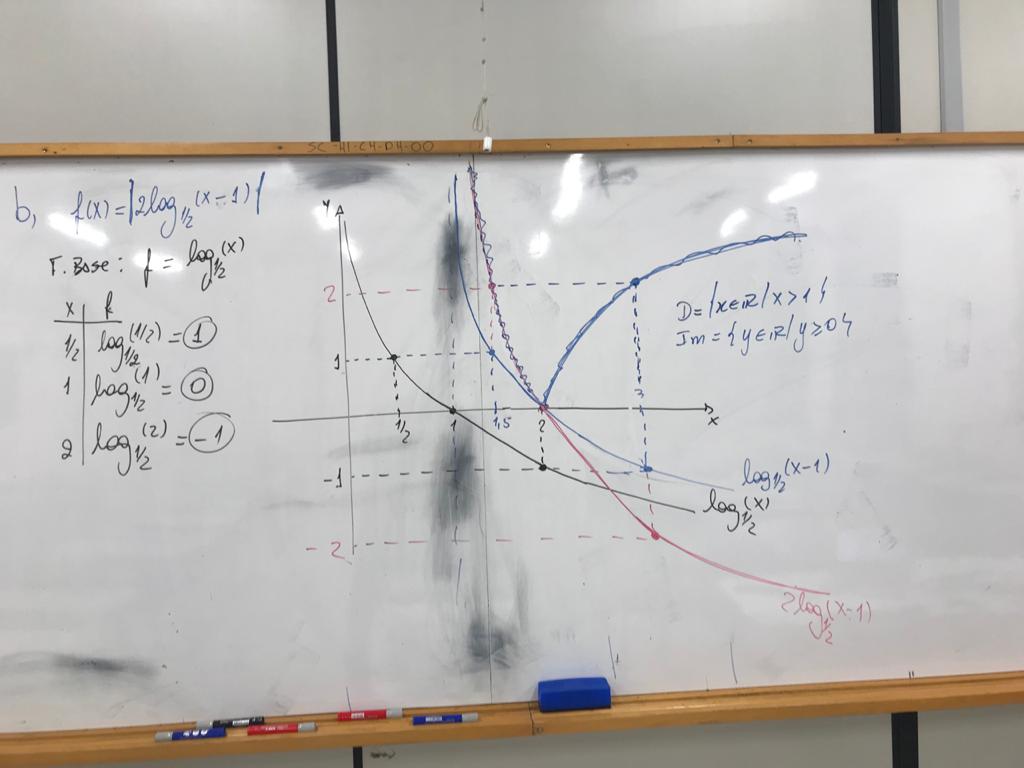 SC-H1-C4-D4-00
b, f(x) = |2log1/2(x-1)|
F. Base: f = log1/2(x)
x f
1/2 log1/2(1/2) = 1
1 log1/2(1) = 0
2 log1/2(2) = -1
y
2
1
-1
-2
1/2 1 1,5 2 3 x
D = {x∈R/x>1}
Im = {y∈R/y≥0}
log1/2(x-1)
log1/2(x)
2log1/2(x-1)